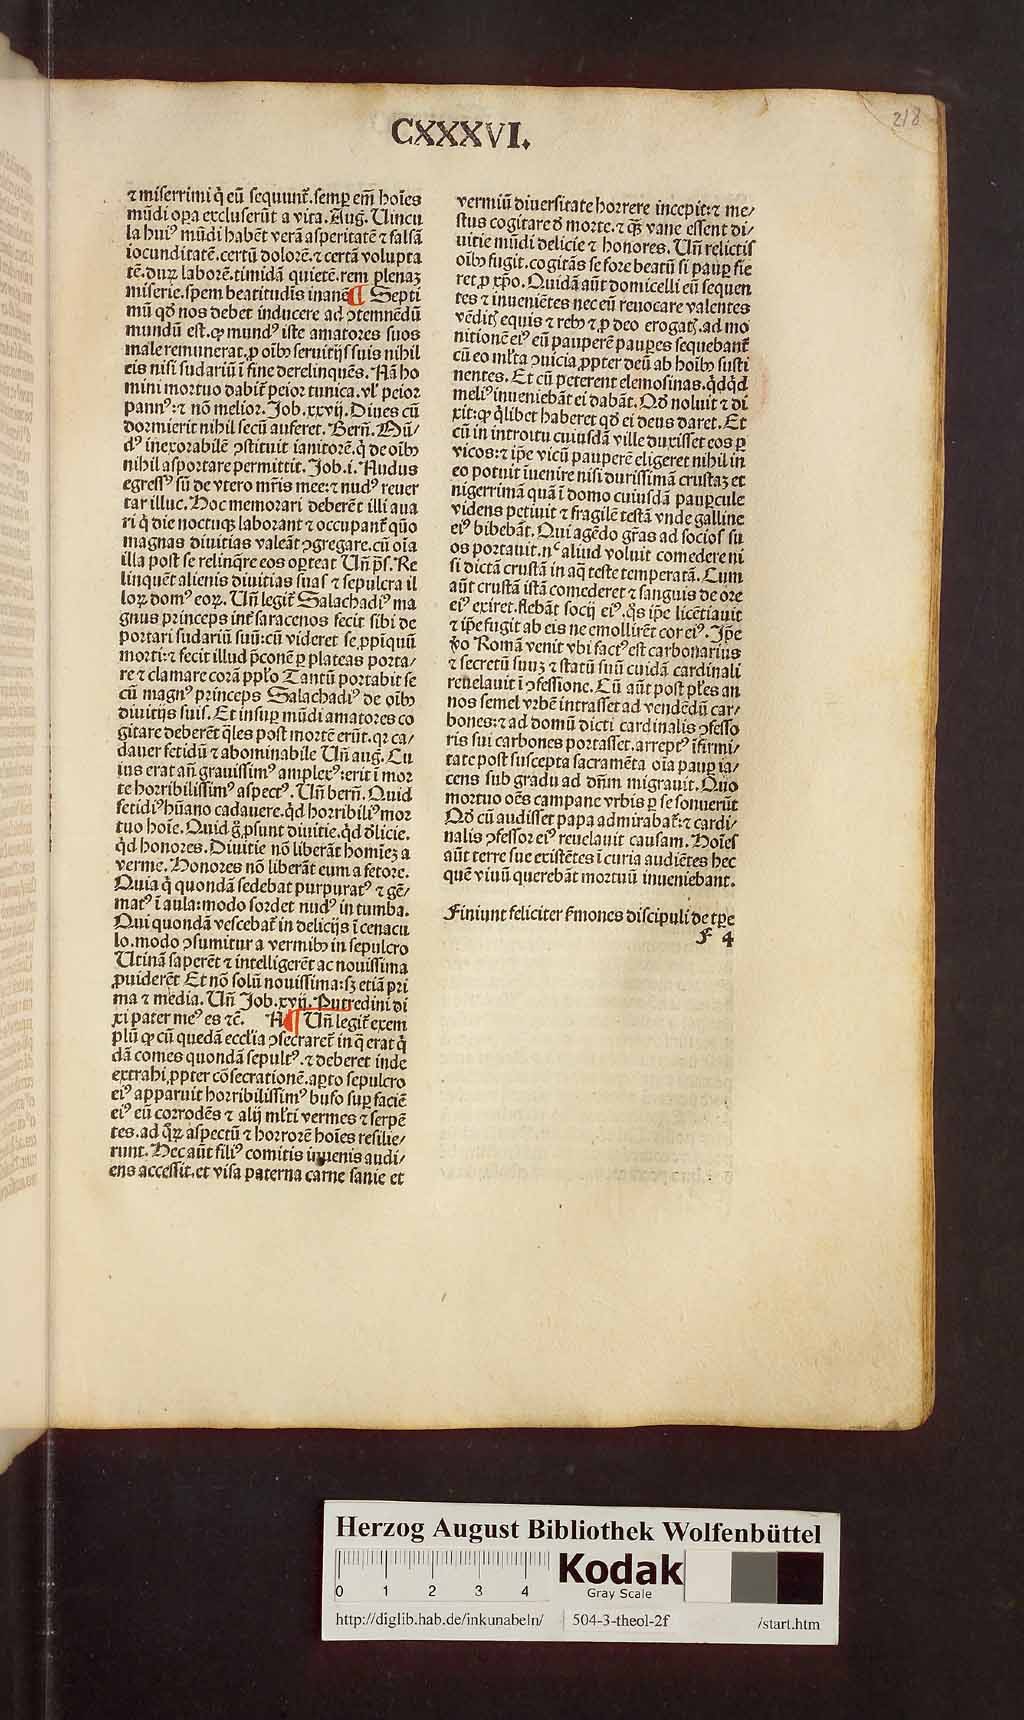 218
CXXXVI.
⁊ miserrimi q̇ eū sequunt̃. semꝑ em̄ hoīes
mūdi oꝑa excluserūt a vita. Aug. Uincu
la huiꝰ mūdi habēt verā asperitatē ⁊ falsā
iocunditatē. certū dolorē. ⁊ certā volupta
tē. duꝝ laborē. timidā quietē. rem plenaꝫ
miserie. spem beatitudīs inanē ¶ Septi
mū qd̓ nos debet inducere ad ꝯtemnēdū
mundū est. ꝙ mundꝰ iste amatores suos
male remunerat. ꝓ oībꝫ seruitijs suis nihil
eis nisi sudariū ī fine derelinquēs. Nā ho
mini mortuo dabit̃ peior tunica. vl̓ peior
pannꝰ: ⁊ nō melior. Job. xxvij. Diues cū
dormierit nihil secū auferet. Berñ. Mū/
dꝰ inexorabilē ꝯstituit ianitorē. q̇ de oībꝫ
nihil asportare permittit. Job. i. Nudus
egressꝰ sū de vtero mr̄is mee: ⁊ nudꝰ reuer
tar illuc. Hoc memorari deberēt illi aua
ri q̇ die noctuqꝫ laborant ⁊ occupant̃ qūo
magnas diuitias valeāt ꝯgregare. cū oīa
illa post se relinq̄re eos oꝑteat Uñ p̄s. Re
linquēt alienis diuitias suas ⁊ sepulcra il
loꝝ domꝰ eoꝝ. Uñ legit̃ Salachadiꝰ ma
gnus princeps int̃ saracenos fecit sibi de
portari sudariū suū: cū videret se ꝓpīquū
morti: ⁊ fecit illud p̄conē ꝑ plateas porta/
re ⁊ clamare corā ppl̓o Tantū portabit se
cū magnꝰ princeps Salachadiꝰ de oībꝫ
diuitijs suis. Et insuꝑ mūdi amatores co
gitare deberēt q̄les post mortē erūt. qꝛ ca/
dauer fetidū ⁊ abominabile Uñ aug. Cu
ius erat añ grauissimꝰ amplexꝰ: erit ī mor
te horribilissimꝰ aspectꝰ. Uñ berñ. Quid
fetidiꝰ hūano cadauere. qd̓ horribiliꝰ mor
tuo hoīe. Quid g̊ ꝓsunt diuitie. qd̓ d̓licie.
qd̓ honores. Diuitie nō liberāt homīeꝫ a
verme. Honores nō liberāt eum a fetore.
Quia q̇ quondā sedebat purpuratꝰ ⁊ gē/
matꝰ ī aula: modo sordet nudꝰ in tumba.
Qui quondā vescebat̃ in delicijs ī cenacu
lo. modo ꝯsumitur a vermibꝫ in sepulcro
Utinā saperēt ⁊ intelligerēt ac nouissima
ꝓuiderēt Et nō solū nouissima: sꝫ etiā pri
ma ⁊ media. Uñ Job. xvij. Putredini di
xi pater meꝰ es ⁊c̄. N ¶ Uñ legit̃ exem
plū ꝙ cū quedā eccl̓ia ꝯsecraret̃ in q̄ erat q̇
dā comes quondā sepultꝰ. ⁊ deberet inde
extrahi ꝓpter cōsecrationē. aꝑto sepulcro
eiꝰ apparuit horribilissimꝰ bufo suꝑ faciē
eiꝰ eū corrodēs ⁊ alij ml̓ti vermes ⁊ serpē
tes. ad q̊ꝝ aspectū ⁊ horrorē hoīes resilie/
runt. Hec aūt filiꝰ comitis iuuenis audi/
ens accessit. et visa paterna carne sanie et
vermiū diuersitate horrere incepit: ⁊ me/
stus cogitare d̓ morte. ⁊ qꝫ vane essent di/
uitie mūdi delicie ⁊ honores. Uñ relictis
oībꝫ fugit. cogitās se fore beatū si pauꝑ fie
ret ꝓ xp̄o. Quidā aūt domicelli eū sequen
tes ⁊ inueniētes nec eū reuocare valentes
vēdit̓ equis ⁊ rebꝫ ⁊ ꝓ deo erogat̓. ad mo
nitionē eiꝰ eū pauperē pauꝑes sequebant̃
cū eo ml̓ta ꝯuicia ꝓpter deū ab hoībꝫ susti
nentes. Et cū peterent elemosinas. qd̓qd̓
meliꝰ inueniebāt ei dabāt. Qd̓ noluit ⁊ di
xit: ꝙ q̇libet haberet qd̓ ei deus daret. Et
cū in introitu cuiusdā ville duxisset eos ꝑ
vicos: ⁊ ip̄e vicū pauperē eligeret nihil in
eo potuit īuenire nisi durissimā crustaꝫ et
nigerrimā quā ī domo cuiusdā pauꝑcule
videns petiuit ⁊ fragilē testā vnde galline
eiꝰ bibebāt. Qui agēdo gr̄as ad socios su
os portauit. nᶜ aliud voluit comedere ni
si dictā crustā in aq̄ teste temperatā. Cum
aūt crustā istā comederet ⁊ sanguis de ore
eiꝰ exiret. flebāt socij eiꝰ. q̊s ip̄e licētiauit
⁊ ip̄e fugit ab eis ne emollirēt cor eiꝰ. Ip̄e
v̊o Romā venit vbi factꝰ est carbonarius
⁊ secretū suuꝫ ⁊ statū suū cuidā cardinali
reuelauit ī ꝯfessione. Cū aūt post pl̓es an
nos semel vrbē intrasset ad vendēdū car/
bones: ⁊ ad domū dicti cardinalis ꝯfesso
ris sui carbones portasset. arreptꝰ īfirmi/
tate post suscepta sacramēta oīa pauꝑ ia/
cens sub gradu ad dñm migrauit. Quo
mortuo oēs campane vrbis ꝑ se sonuerūt
Qd̓ cū audisset papa admirabat̃: ⁊ cardi/
nalis ꝯfessor eiꝰ reuelauit causam. Hoīes
aūt terre sue existētes ī curia audiētes hec
quē viuū querebāt mortuū inueniebant.
Finiunt feliciter s̄mones discipuli de tꝑe
F 4
Herzog August Bibliothek Wolfenbüttel
0 1 2 3 4
Kodak
Gray Scale
http://diglib.hab.de/inkunabeln/ 504-3-theol-2f /start.htm